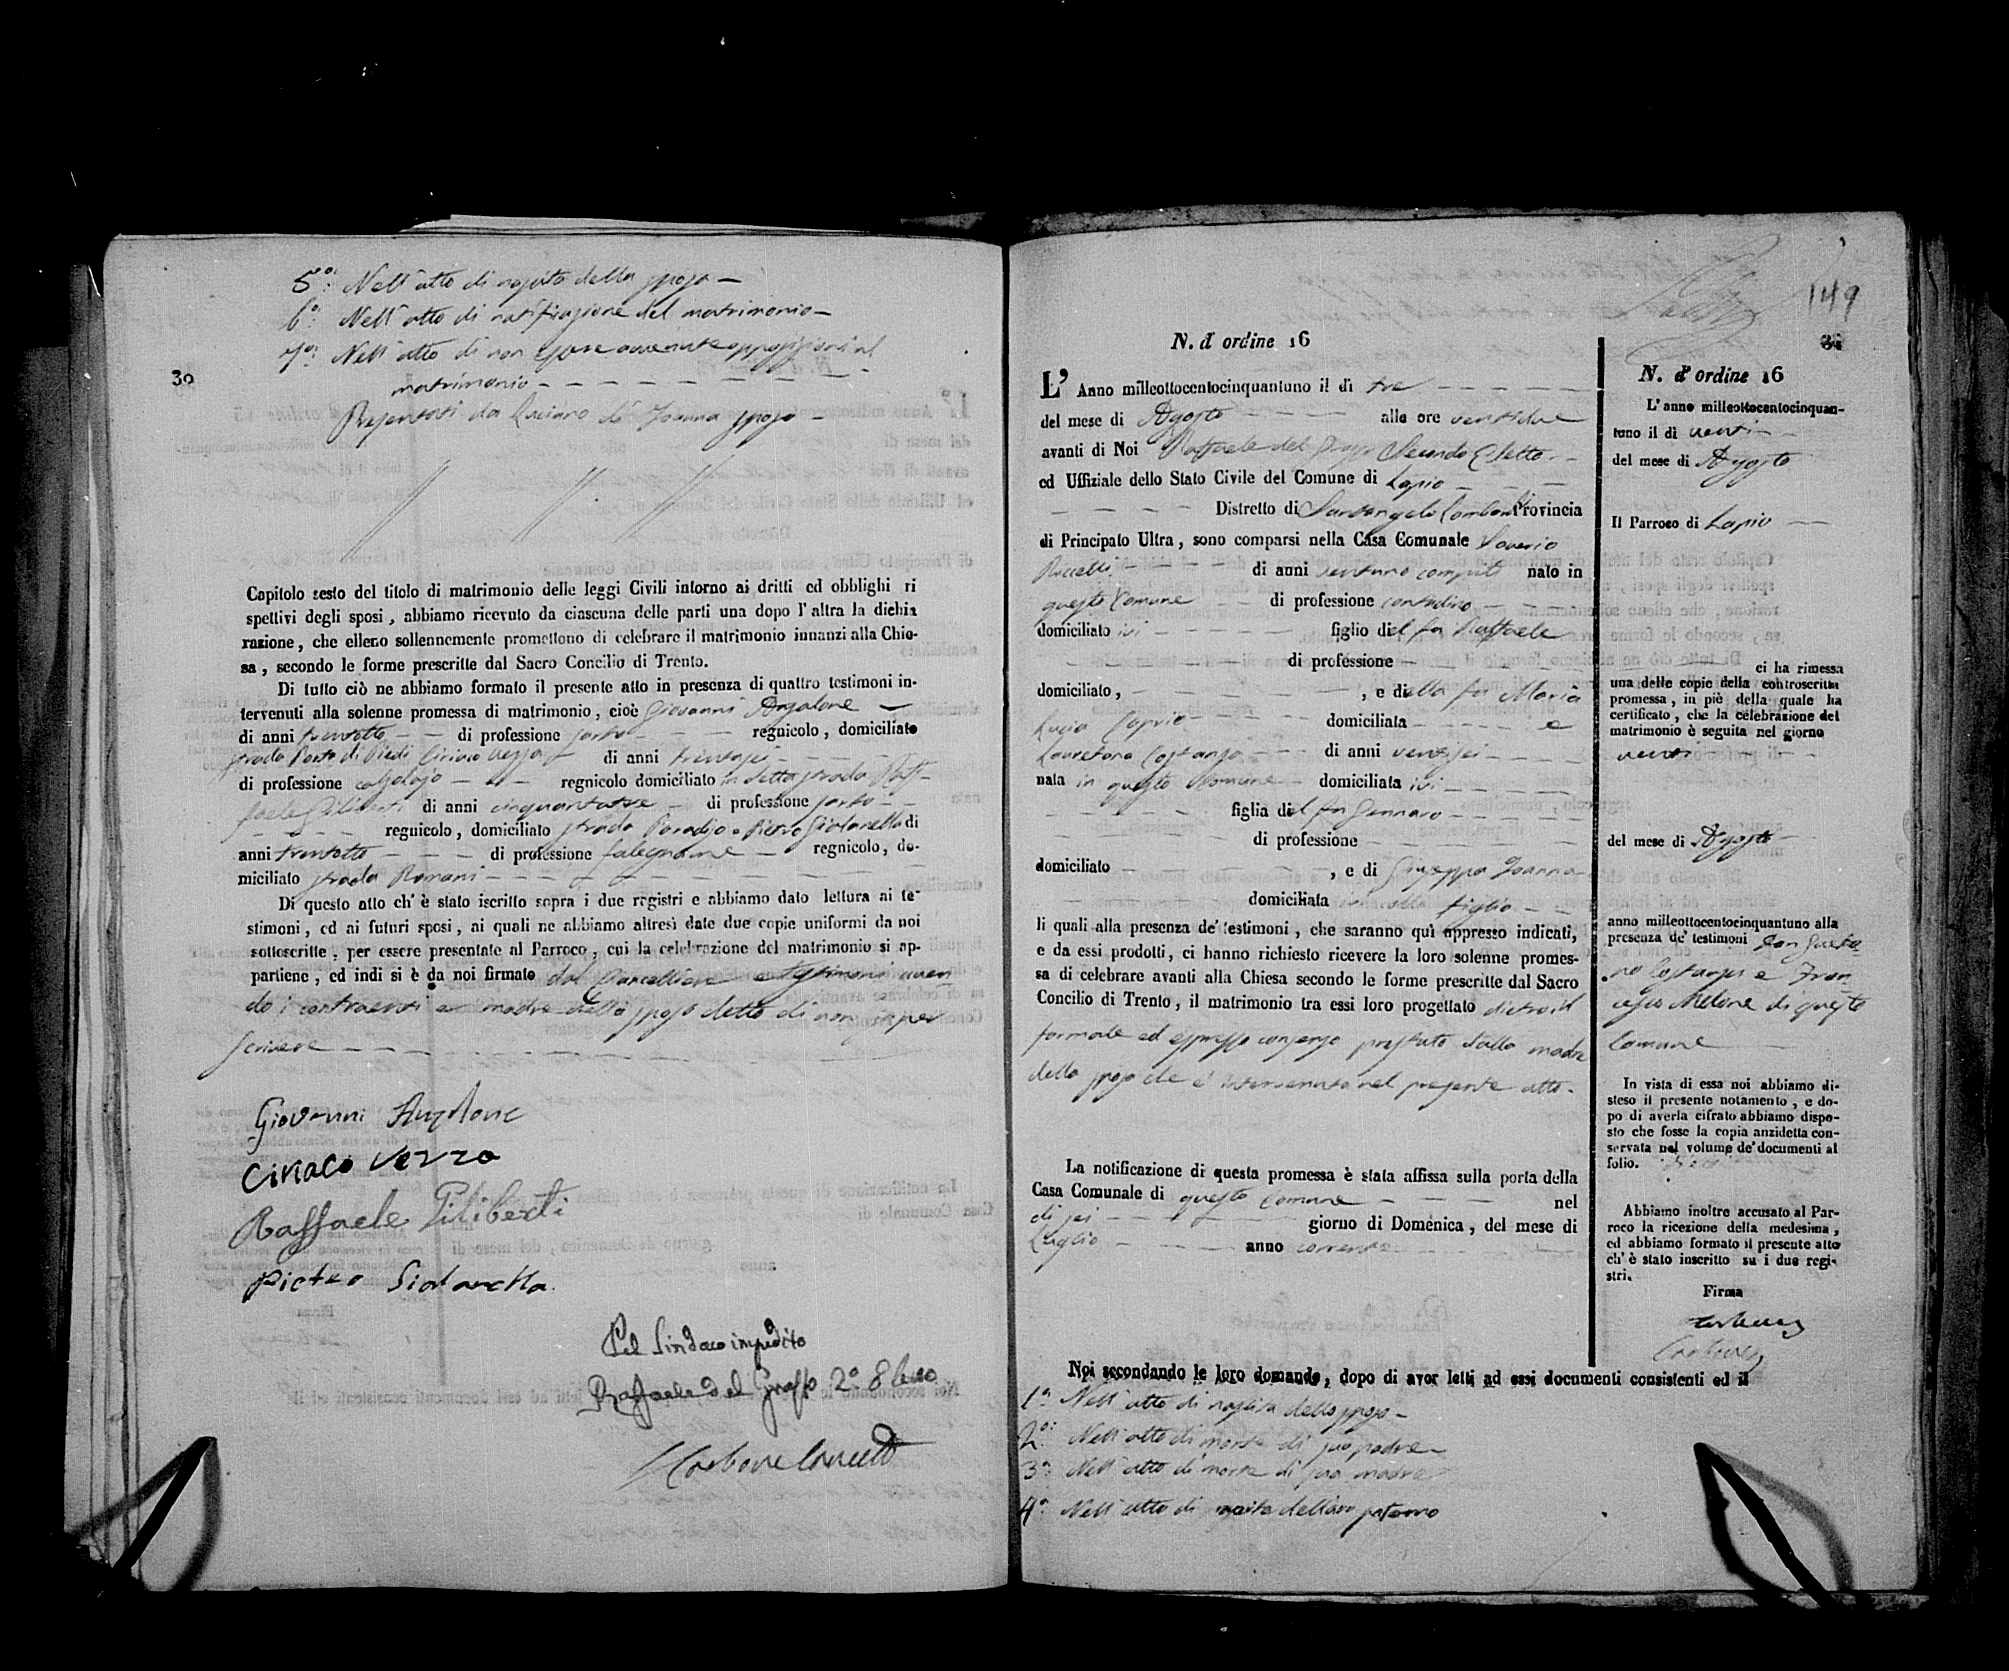 5°: Nell'atto di nascita della sposa —
6°: Nell'atto di notificazione del matrimonio —
7°: Nell'atto di non essere avvenute opposizioni al
matrimonio — — — — — — — —
30
Presentati da Luciano di Joanna sposo —
Capitolo sesto del titolo di matrimonio delle leggi Civili intorno ai dritti ed obblighi ri
spettivi degli sposi, abbiamo ricevuto da ciascuna delle parti una dopo l'altra la dichia
razione, che elleno sollennemente promettono di celebrare il matrimonio innanzi alla Chie-
sa, secondo le forme prescritte dal Sacro Concilio di Trento.
Di tutto ciò ne abbiamo formato il presente atto in presenza di quattro testimoni in-
tervenuti alla solenne promessa di matrimonio, cioè Giovanni Anzalone —
di anni trentotto — — di professione sarto — — — regnicolo, domiciliato
strada Porta di Piedi Ciriaco Verzo di anni trentasei — — —
di professione calzolajo — — — regnicolo domiciliato in detta strada Raf-
faele Giliberti di anni cinquantasei — di professione sarto — —
— — — regnicolo, domiciliato strada Paradiso e Pietro Siolanella di
anni trentotto — — — di professione falegname — regnicolo, do-
miciliato strada Romani — — — — — — —
Di questo atto ch'è stato iscritto sopra i due registri e abbiamo dato lettura ai te-
stimoni, ed ai futuri sposi, ai quali ne abbiamo altresì date due copie uniformi da noi
sottoscritte, per essere presentate al Parroco, cui la celebrazione del matrimonio si ap-
partiene, ed indi si è da noi firmato dal Cancelliere e testimoni aven
do i contraenti e madre della sposa detto di non saper
scrivere — — — — — —
Giovanni Anzalone
Ciriaco Verzo
Raffaele Giliberti
Pietro Siolanella
Pel Sindaco impedito
Raffaele del Grosso 2° Eletto
Carbone
149
N. d'ordine 16
L'Anno milleottocentocinquantuno il dì tre — — — — —
del mese di Agosto — — — — alle ore ventidue
avanti di Noi Raffaele del Grosso Secondo Eletto —
ed Uffiziale dello Stato Civile del Comune di Lapio — — —
— — — — Distretto di Santangelo Lombardi Provincia
di Principato Ultra, sono comparsi nella Casa Comunale Saverio
— — — — di anni ventuno compiti nato in
questo Comune — — di professione contadino — —
domiciliato ivi — — — — — figlio del fu Raffaele
— — — — — — di professione — — — — —
domiciliato, — — — — — — , e della fu Maria
Lucia Caprio — — — — domiciliata — — — — e
Lauretana Costanzo — — — di anni ventisei — — — —
nata in questo Comune — domiciliata ivi — — — — —
— — — — — figlia del fu Gennaro — — — — —
di professione — — — — —
domiciliato — — — — — , e di Giuseppa Joanna
domiciliata colla figlia — —
li quali alla presenza de' testimoni, che saranno quì appresso indicati,
e da essi prodotti, ci hanno richiesto ricevere la loro solenne promes-
sa di celebrare avanti alla Chiesa secondo le forme prescritte dal Sacro
Concilio di Trento, il matrimonio tra essi loro progettato dietro il
formale ed espresso consenso prestato dalla madre
della sposa che è intervenuta nel presente atto.
La notificazione di questa promessa è stata affissa sulla porta della
Casa Comunale di questo Comune — — — nel
dì sei — — — — — giorno di Domenica, del mese di
Luglio — — — — anno corrente
Noi secondando le loro domande, dopo di aver letti ad essi documenti consistenti ed il
1° Nell'atto di nascita dello sposo —
2°: Nell'atto di morte di suo padre —
3° Nell'atto di morte di sua madre
4° Nell'atto di morte dell'avo paterno
N. d'ordine 16
L'anno milleottocentocinquan-
tuno il dì venti — —
del mese di Agosto
Il Parroco di Lapio — —
ci ha rimessa
una delle copie della controscritta
promessa, in piè della quale ha
certificato, che la celebrazione del
matrimonio è seguita nel giorno
venti — — — —
del mese di Agosto —
anno milleottocentocinquantuno alla
presenza de' testimoni Don Gaeta-
no Costanzo e Fran
cesco Melone di questo
Comune —
In vista di essa noi abbiamo di-
steso il presente notamento, e do-
po di averla cifrato abbiamo dispo-
sto che fosse la copia anzidetta con-
servata nel volume de' documenti al
folio.
Abbiamo inoltre accusato al Par-
roco la ricezione della medesima,
ed abbiamo formato il presente atto
ch'è stato inscritto su i due regi-
stri.
Firma